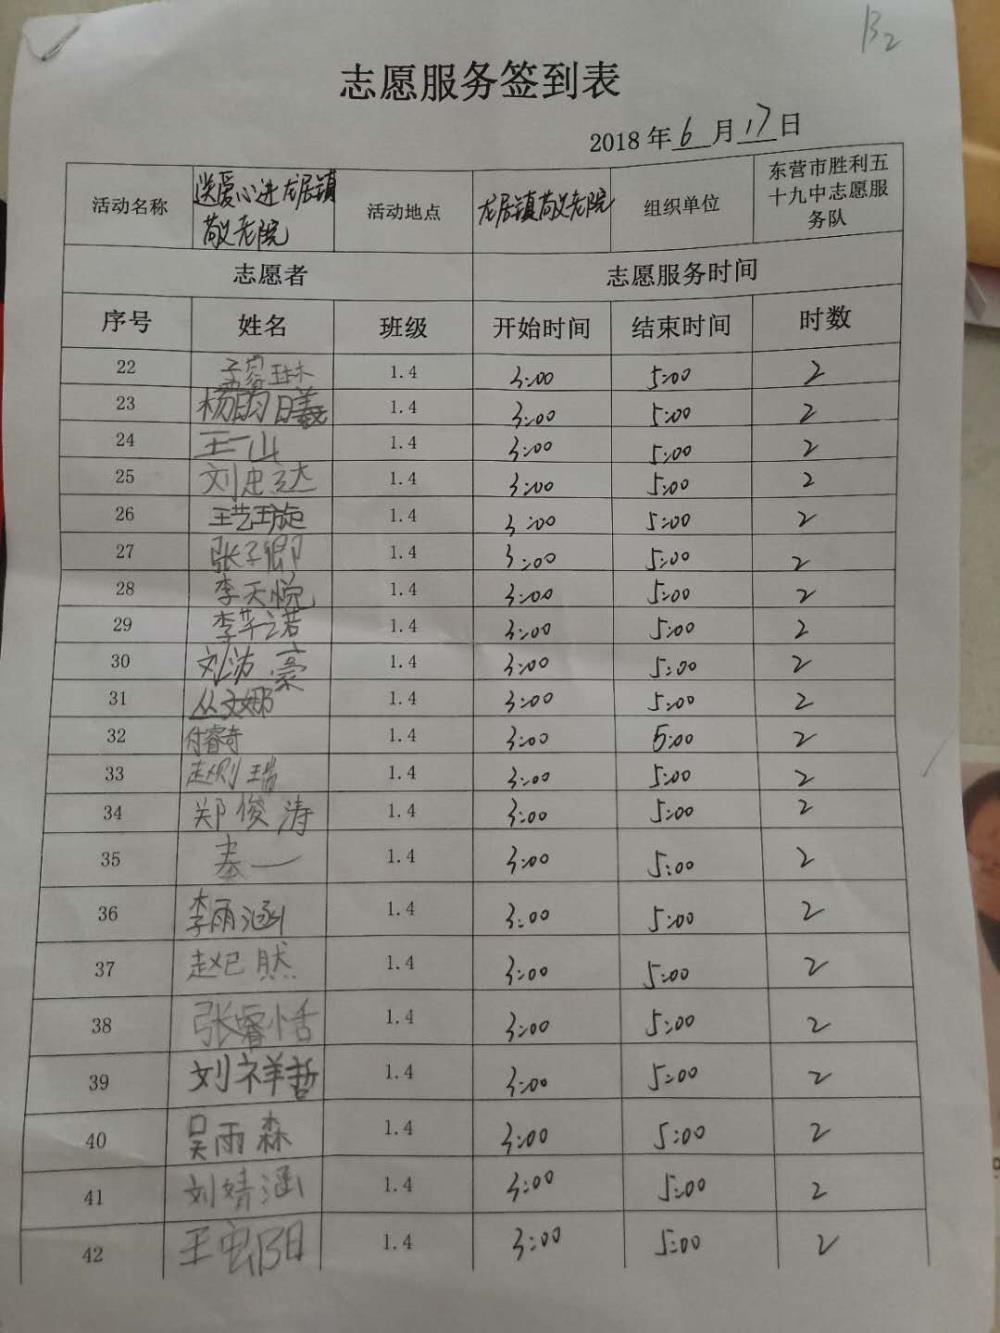 B2
志愿服务签到表
2018 年 6 月 17 日
活动名称 送爱心进龙居镇敬老院 活动地点 龙居镇敬老院 组织单位 东营市胜利五十九中志愿服务队
志愿者 志愿服务时间
序号 姓名 班级 开始时间 结束时间 时数
22 孟蓉琳 1.4 3:00 5:00 2
23 杨昀曦 1.4 3:00 5:00 2
24 王一山 1.4 3:00 5:00 2
25 刘忠达 1.4 3:00 5:00 2
26 王艺璇 1.4 3:00 5:00 2
27 张子卿 1.4 3:00 5:00 2
28 李天悦 1.4 3:00 5:00 2
29 李芊诺 1.4 3:00 5:00 2
30 刘 豪 1.4 3:00 5:00 2
31 丛文娜 1.4 3:00 5:00 2
32 付睿奇 1.4 3:00 5:00 2
33 赵则瑞 1.4 3:00 5:00 2
34 郑俊涛 1.4 3:00 5:00 2
35 1.4 3:00 5:00 2
36 李雨涵 1.4 3:00 5:00 2
37 赵已然 1.4 3:00 5:00 2
38 张睿恬 1.4 3:00 5:00 2
39 刘祥哲 1.4 3:00 5:00 2
40 吴雨森 1.4 3:00 5:00 2
41 刘婧涵 1.4 3:00 5:00 2
42 王 阳 1.4 3:00 5:00 2